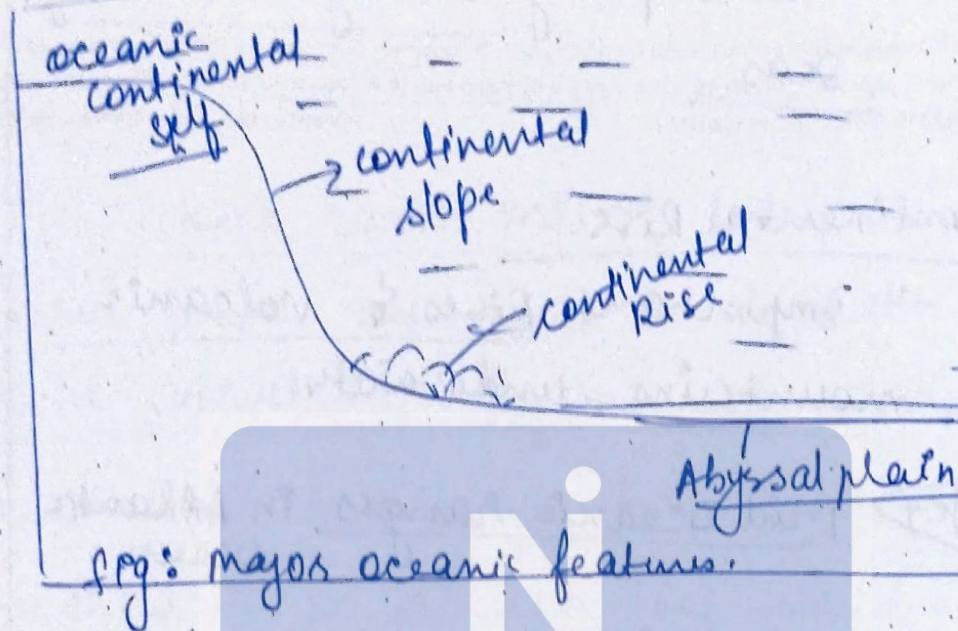 oceanic
continental
self
continental
slope
continental
Rise
Abyssal plain
fig: major oceanic features.